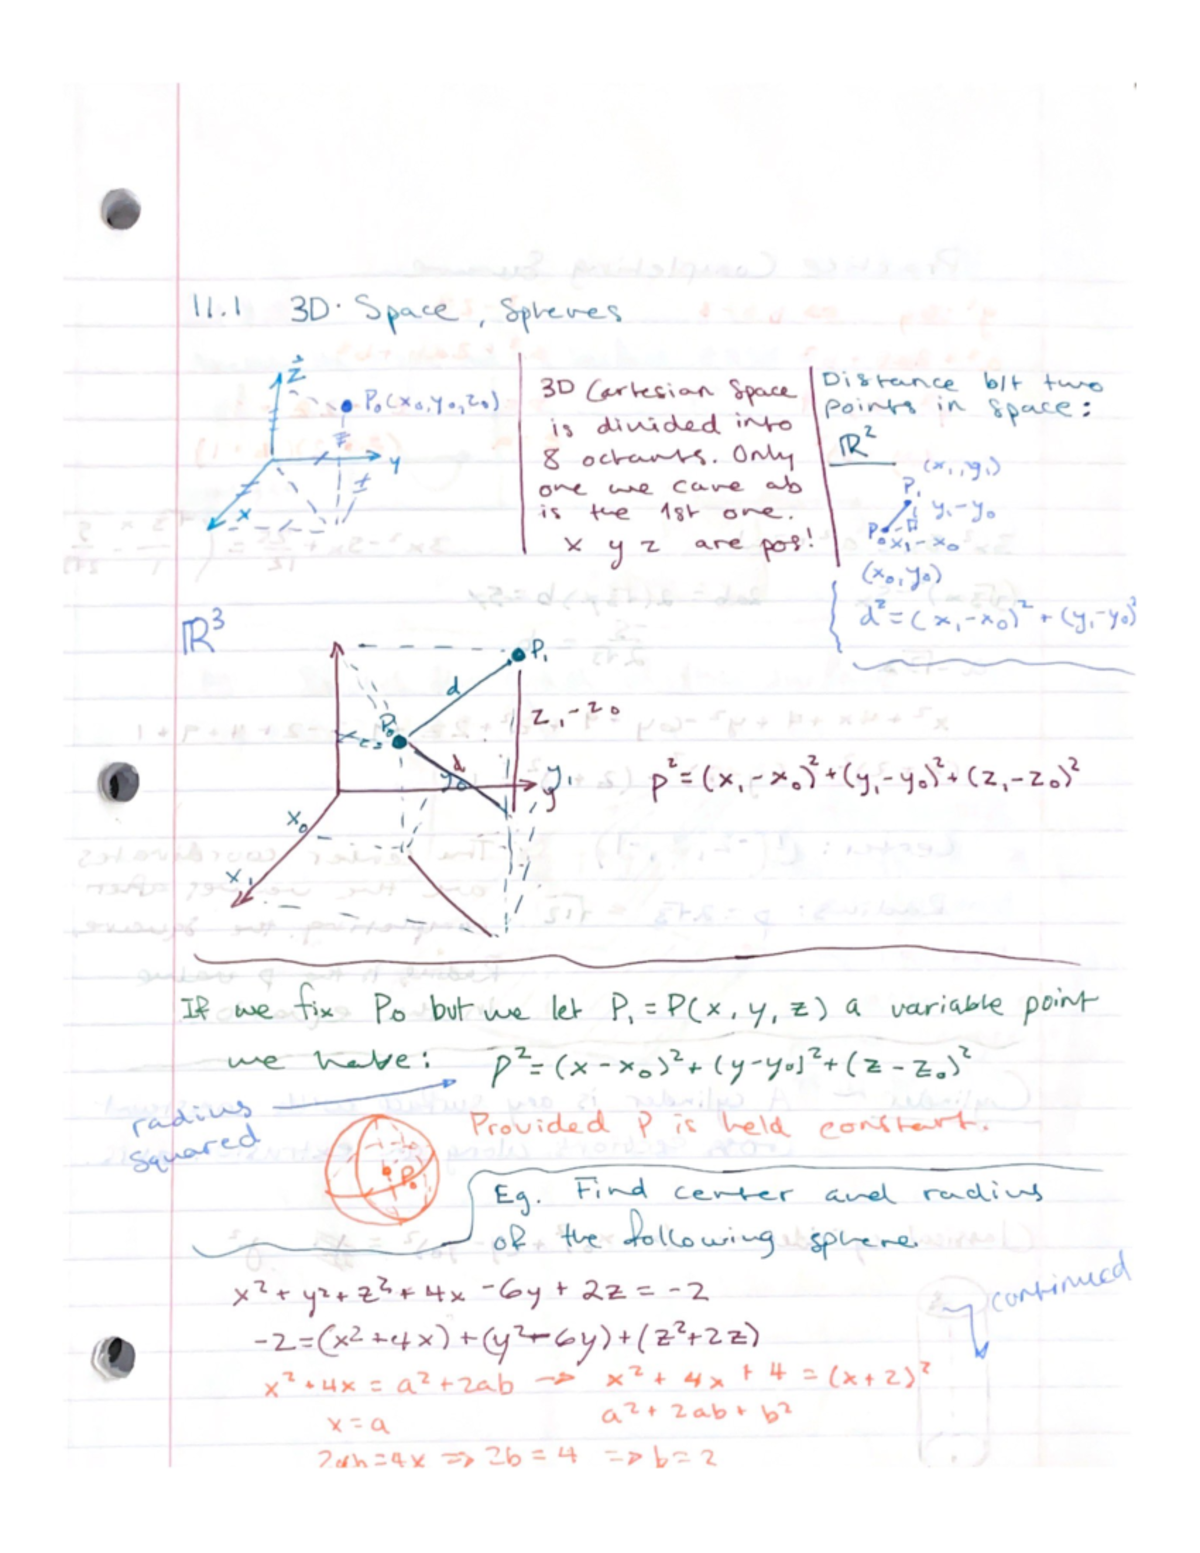 11.1 3D. Space, Spheres
z
P₀(x₀,y₀,z₀)
y
x
3D Cartesian Space
is divided into
8 octants. Only
one we care ab
is the 1st one.
x y z are pos!
Distance b/t two
Points in Space:
ℝ²
(x₁,y₁)
P₁
y₁-y₀
P₀
x₁-x₀
(x₀,y₀)
d²=(x₁-x₀)²+(y₁-y₀)²
ℝ³
P₁
d
z₁-z₀
P₀
z₀
d
y₀
y₁
y
p²=(x₁-x₀)²+(y₁-y₀)²+(z₁-z₀)²
x₀
x₁
If we fix P₀ but we let P₁=P(x,y,z) a variable point
we have: p²=(x-x₀)²+(y-y₀)²+(z-z₀)²
radius
squared
Provided P is held constant.
P₀
Eg. Find center and radius
of the following sphere.
x²+y²+z²+4x-6y+2z=-2
continued
-2=(x²+4x)+(y²-6y)+(z²+2z)
x²+4x=a²+2ab → x²+4x+4=(x+2)²
x=a a²+2ab+b²
2ab=4x => 2b=4 => b=2